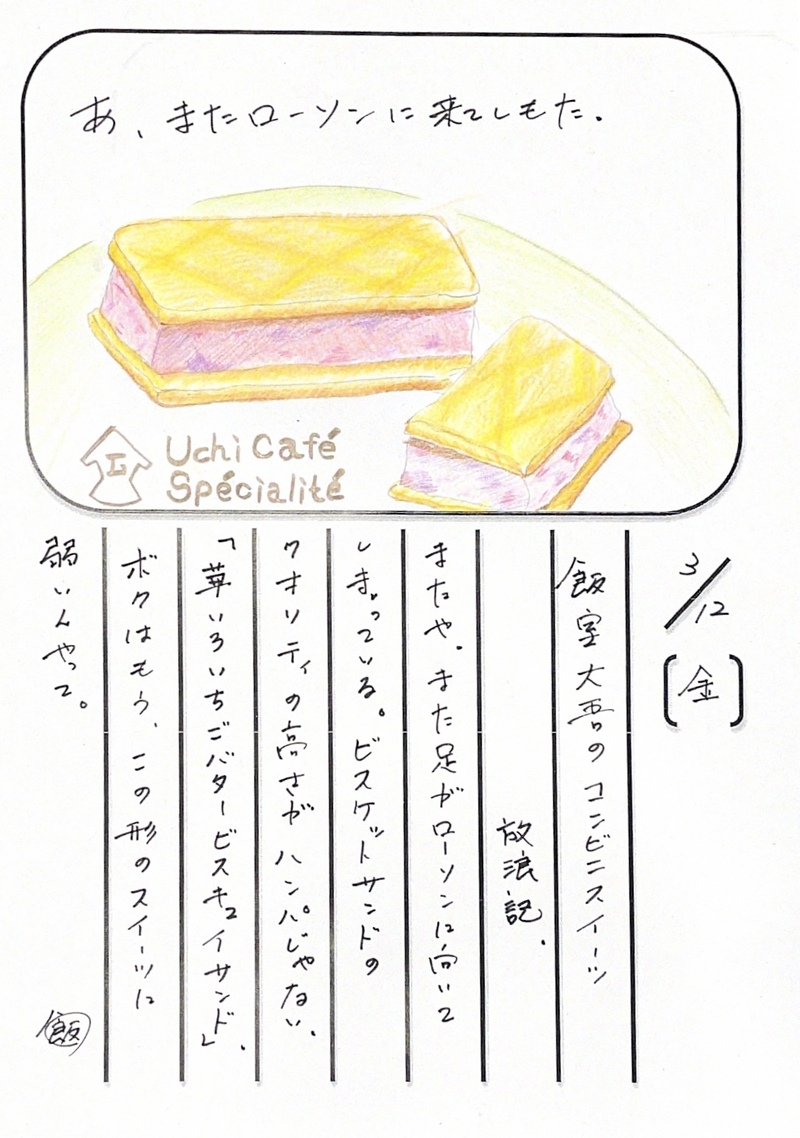 あ、またローソンに来てしもた.
Uchi Café
Spécialité
3/12
[金]
飯室大吾のコンビニスイーツ
放浪記.
またや.また足がローソンに向いて
しまっている。ビスケットサンドの
クオリティの高さがハンパじゃない.
「苺いろいちごバタービスキュイサンド」.
ボクはもう、この形のスイーツに
弱いんやって。
飯